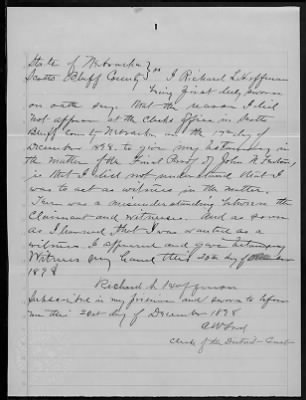 State of Nebraska } ss
Scotts Bluff County } I Richard L Hoffman
being first duly sworn
on oath say. that the reason I did
not appear at the Clerks Office in Scotts
Bluff County Nebraska on the day of
December 1898. to give my testimony in
the matter of the Final Proof of John N.
is that I did not understand that I
was to act as witness in the matter.
There was a misunderstanding between the
Claimant and witnesses. And as soon
as I learned that I was wanted as a
witness. I appeared and gave testimony
Witness my hand this 20th day of
1898
Richard L Hoffman
Subscribed in my presence and sworn to before
me this 20th day of December 1898
Clerk of the District Court